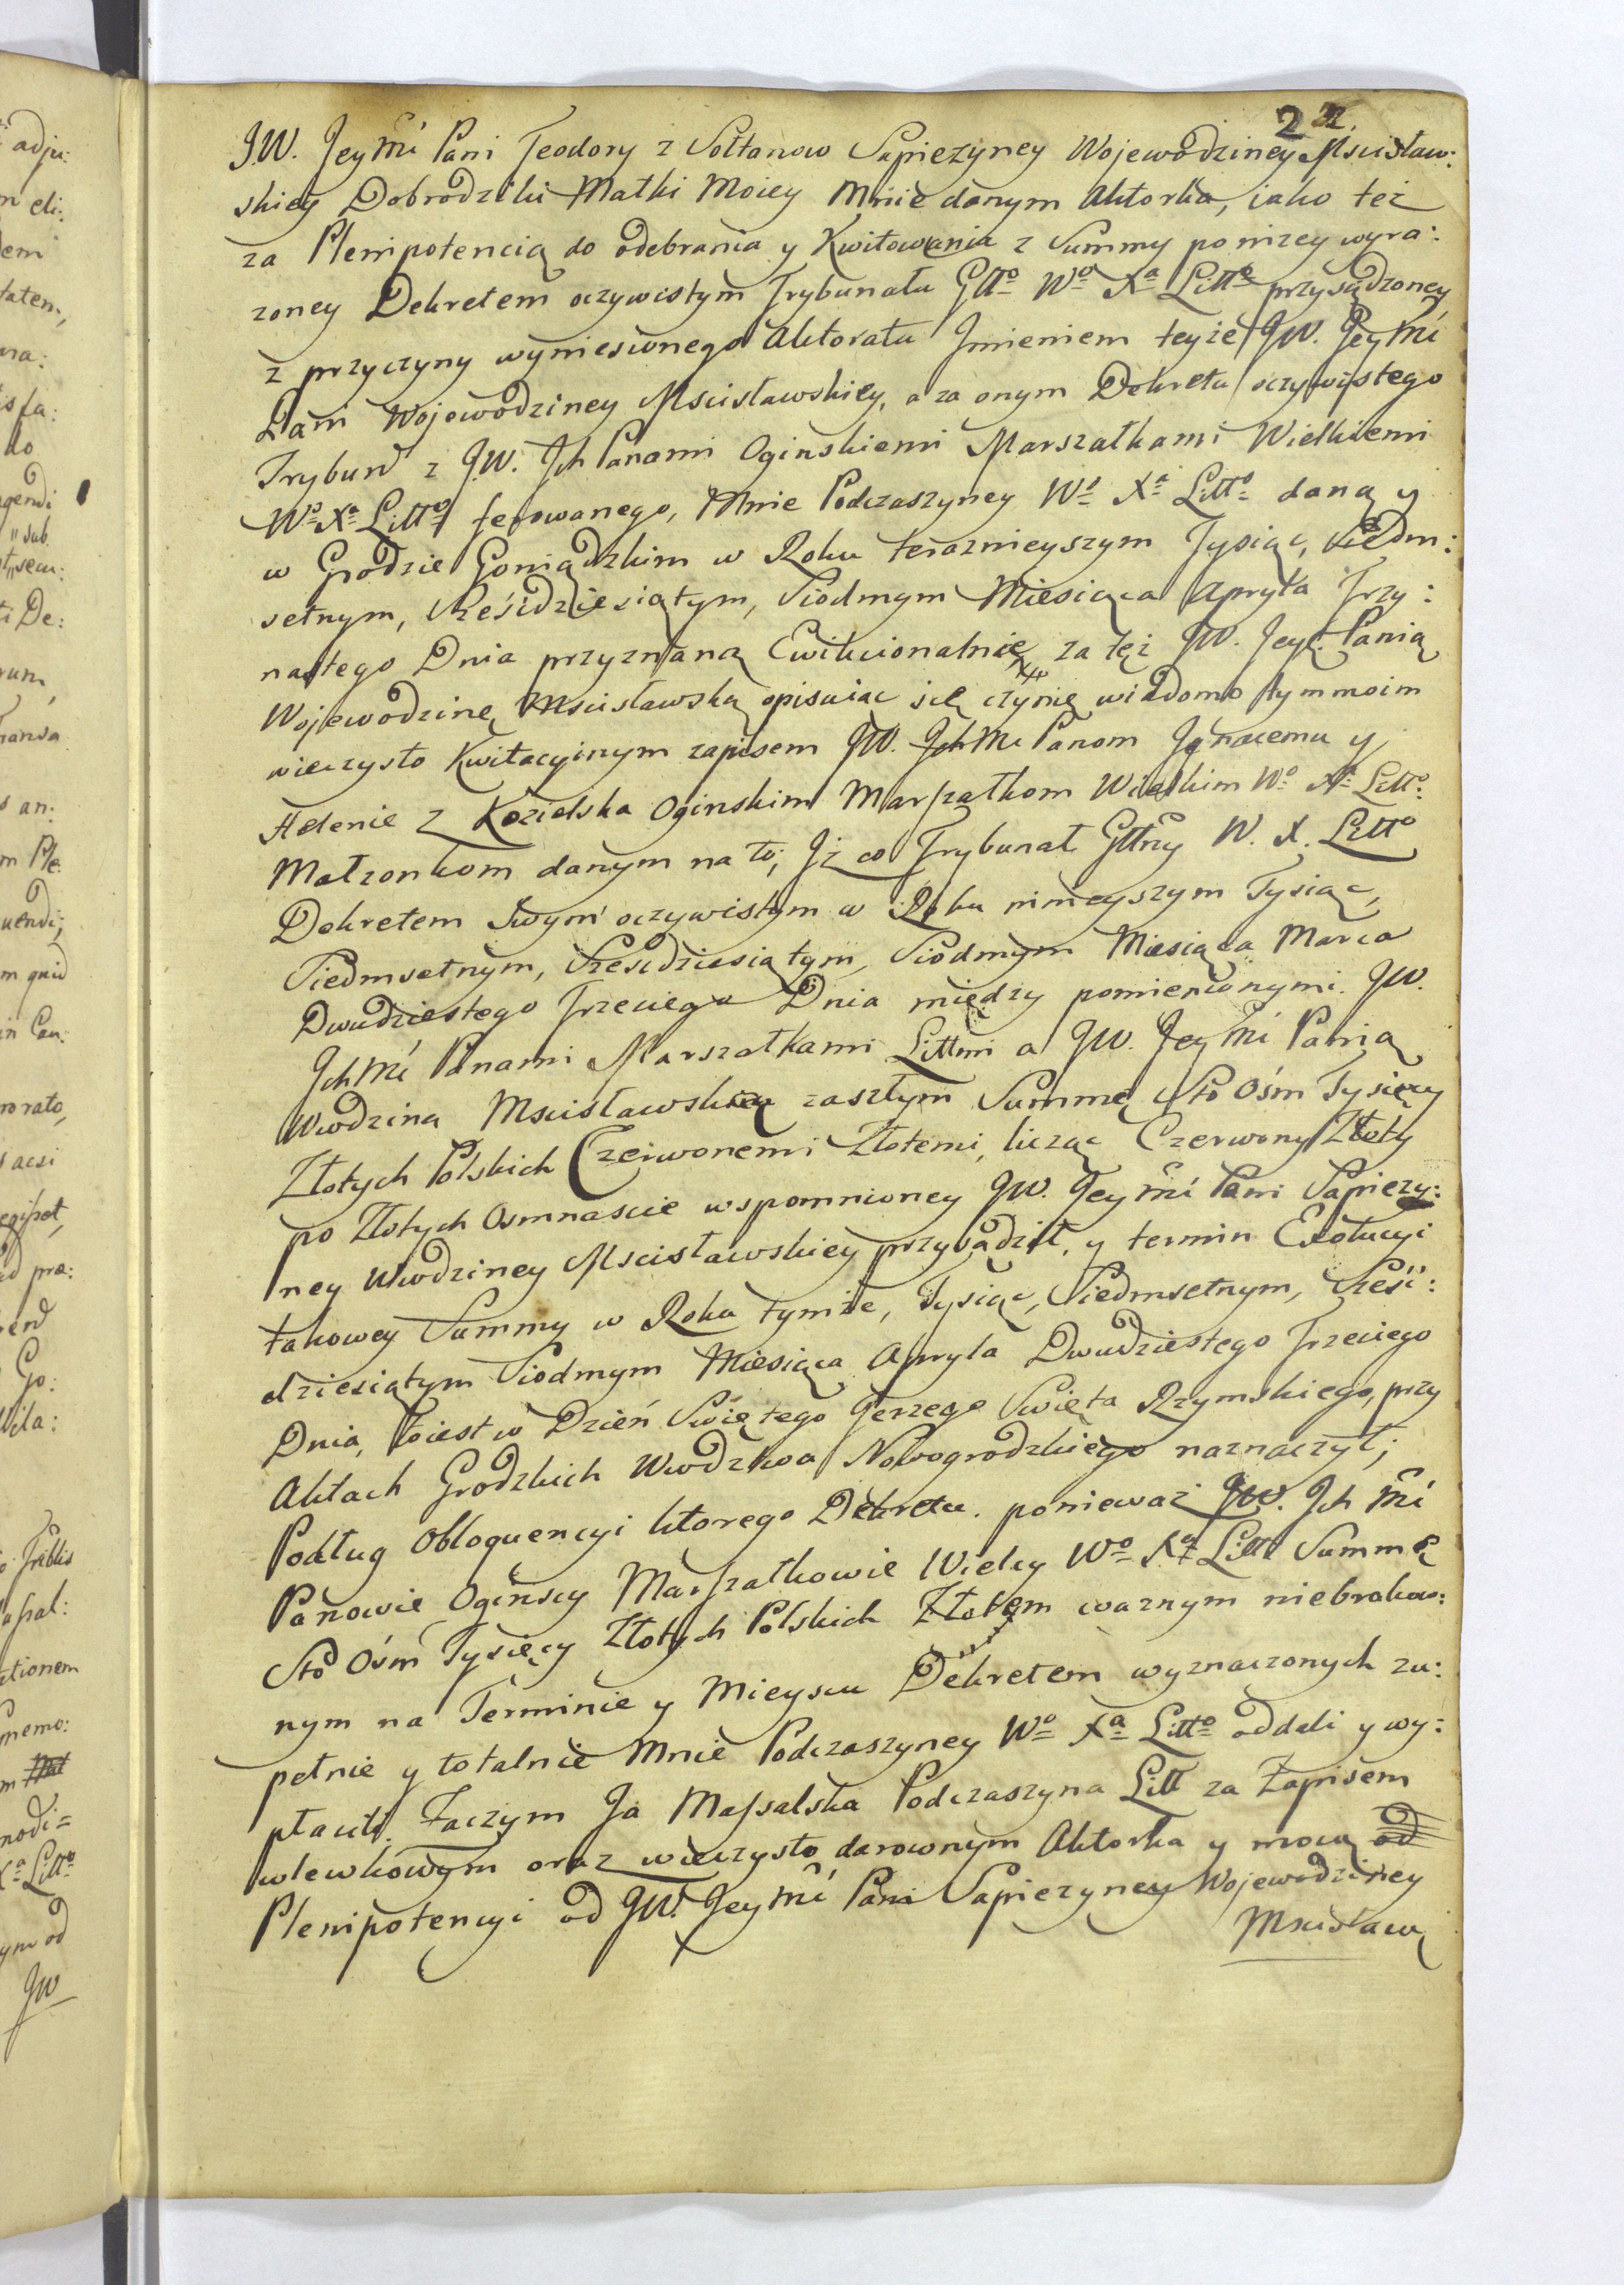 22.
J.W. JeyMci Pani Teodory z Sołtanow Sapiezyney Wojewodziney Mscisław:
skiey Dobrodziki Matki Moiey Mnie danym Aktorka, iako też
za Plenipotencią do odebrania y Kwitowania z Summy ponizey wyra:
zoney Dekretem oczywistym Trybunału Głło Wo Xa Litto przysądzoney
z przyczyny wyniesionego Aktoratu Jmieniem teyże JW. JeyMci
Pani Wojewodziney Mscisławskiey, a za onym Dekretu oczywistego
Trybun z JW. Ich Panami Oginskiemi Marszałkami Wielkiemi
Wo Xa Litto ferowanego, Mnie Podczaszyney Wo Xa Litto daną y
w Grodzie Goniądzkim w Roku teraznieyszym Tysiąc, siedm:
setnym, Sześćdziesiątym, Siodmym Miesiąca Apryla Trzy:
nastego Dnia przyznaną Ewikcionalnie za tęż JW. Jeyć Panią
Wojewodzinę Mscisławską opisuiąc się czynię wiadomo tym moim
wieczysto Kwitacyinym zapisem JW. IchMc Panom Jgnacemu y
Helenie z Kozielska Oginskim Marszałkom Wielkim Wo Xa Litto
Małzonkom danym na to; Jż co Trybunał Głłny W. X. Litto
Dekretem Swym oczywistym w Roku ninieyszym Tysiąc,
Siedmsetnym, Sześćdziesiątym, Siodmym Miesiąca Marca
Dwudziestego Trzeciego Dnia między pomienionymi JW.
IchMci Panami Marszałkami Littmi a JW. JeyMci Panią
Wwodziną Mscisławską zaszłym Summę Sto Ośm Tysięcy
Złotych Polskich Czerwonemi Złotemi, licząc Czerwony Złoty
po Złotych Osmnascie wspomnioney JW. Jey Mci Pani Sapiezy:
ney Wwodziney Mscisławskiey przysądził, y termin Exolucyi
takowey Summy w Roku tymże, Tysiąc, Siedmsetnym, Sześć:
dziesiątym Siodmym Miesiąca Apryla Dwudziestego Trzeciego
Dnia, toiest w Dzień Swiętego Jerzego Swięta Rzymskiego, przy
Aktach Grodzkich Wwodztwa Nowogrodzkiego naznaczył;
Podług Obloquencyi ktorego Dekretu. ponieważ JW. Ich Mci
Panowie Oginscy Marszałkowie Wielcy Wo Xa Litto Summę
Sto Ośm Tysięcy Złotych Polskich Złotem ważnym niebrakow:
nym na Terminie y Mieyscu Dekretem wyznaczonych zu:
pełnie y totalnie Mnie Podczaszyney Wo Xa Litto oddali y wy:
płacili. Zaczym Ja Massalska Podczaszyna Litt za Zapisem
wlewkowym oraz wieczysto darownym Aktorka y mocą od
Plenipotencyi od JW. JeyMci Pani Sapiezyney Wojewodziney
Mscisław